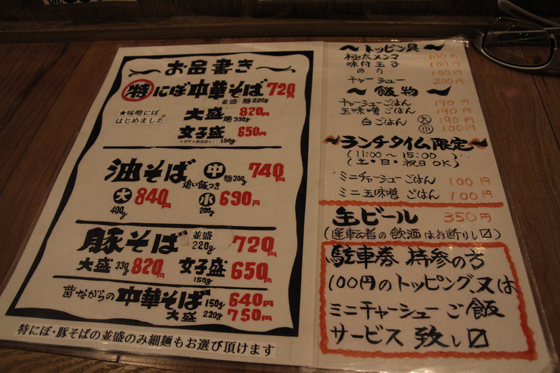 お品書き
特にぼ中華そば 720円
並盛 麺220g
★味噌にぼ
はじめました
大盛 820円
麺330g
女子盛 650円
油そば 中 740円
追い飯つき
麺300g
大 840円 小 690円
400g 200g
豚そば 並盛 220g 720円
大盛 33g 820円 女子盛 650円
150g
昔ながらの中華そば 150g 640円
大盛 220g 750円
特にぼ・豚そばの並盛のみ細麺もお選び頂けます
〜トッピン具〜
極太メンマ 100円
味付玉子 100円
のり 100円
チャーシュー 200円
〜飯物〜
チャーシューごはん 190円
玉味噌ごはん 190円
白ごはん 大 190円
小 100円
ランチタイム限定
(11:00〜15:00)
(土・日・祝日OK)
ミニチャーシューごはん 100円
ミニ玉味噌ごはん 100円
生ビール 350円
(運転者の飲酒はお断りし〼)
駐車券持参の方
100円のトッピング又は
ミニチャーシューご飯
サービス致し〼